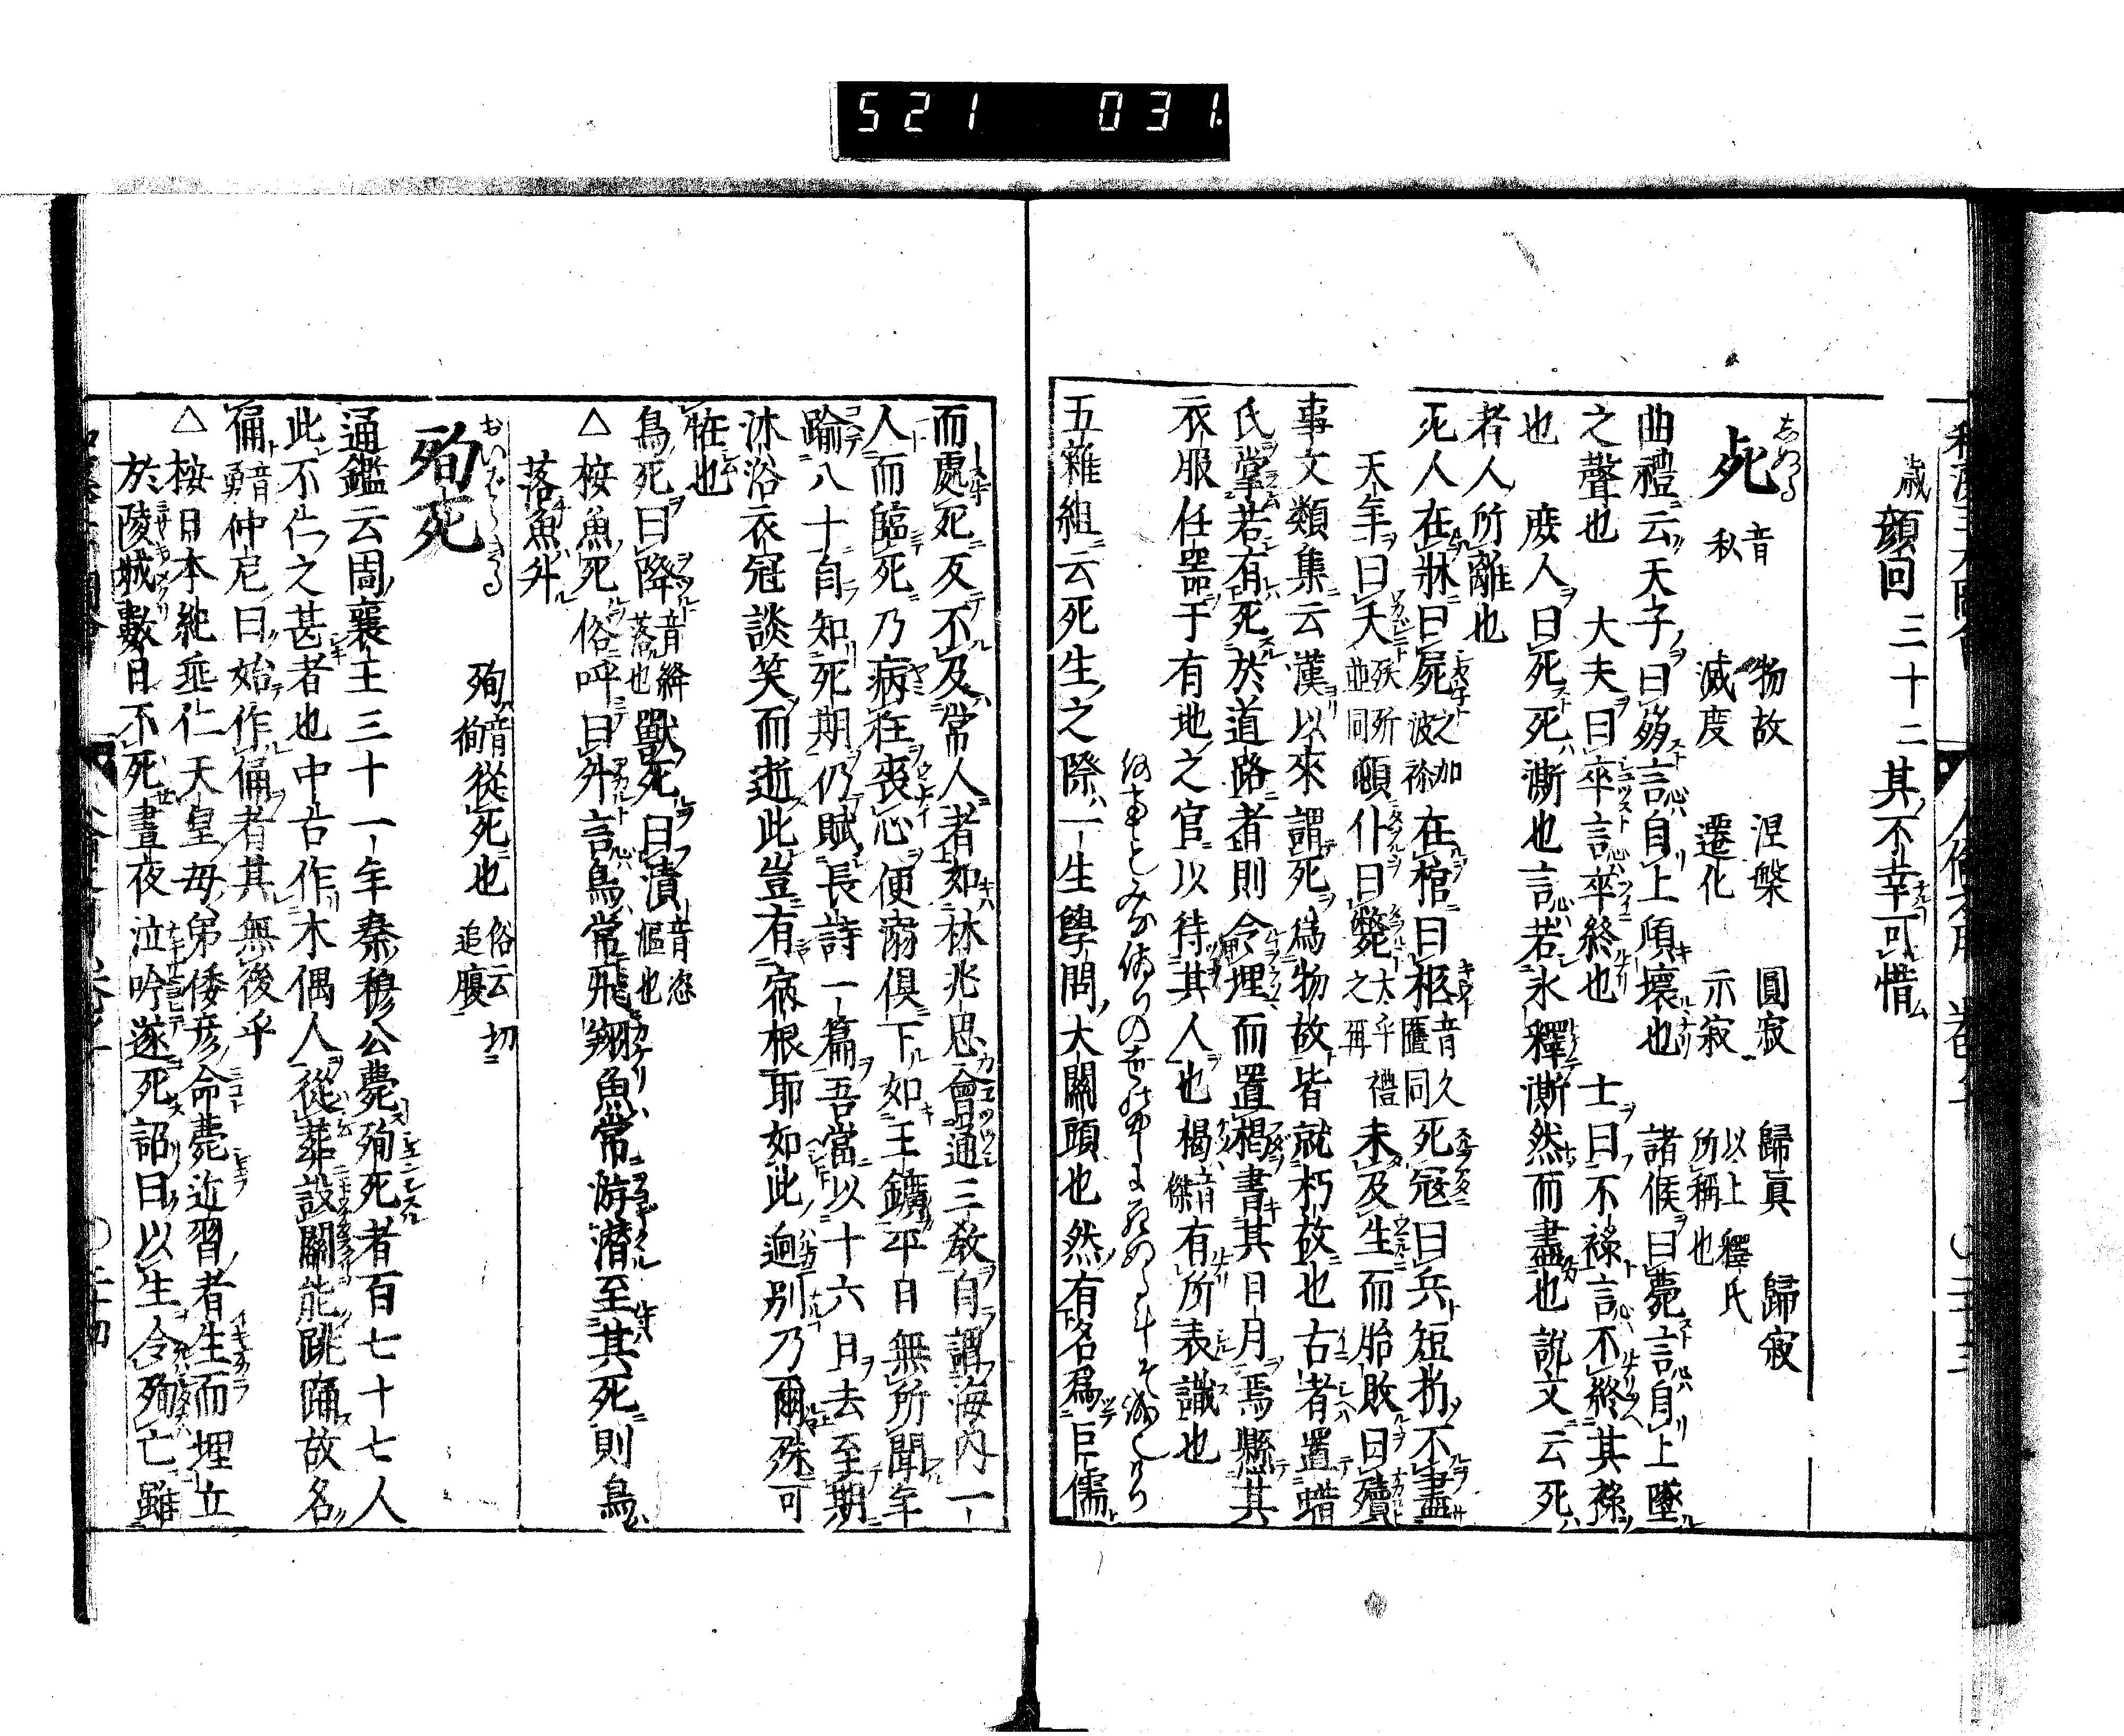 521 031.
歳顔回三十二其不幸可惜
しぬる
死 音私 物故 涅槃 圓寂 歸眞 歸寂
滅度 遷化 示寂 以上釋氏所稱也
曲禮云天子曰崩言自上頃壞也 諸侯曰薨言自上墜
之聲也 大夫曰卒言卒終也 士曰不祿言不終其祿
也 庶人曰死死澌也言若氷釋澌然而盡也説文云死
者人所離也
死人在牀曰屍 在棺曰柩音久匶同 死冦曰兵短折不盡
天年曰夭 頓仆曰斃 未及生而胎敗曰殰
事文類集云漢以來謂死爲物故皆就朽故也古者置蜡
氏掌若有死於道路者則令埋而置楬書其日月焉縣其
衣服任器于有地之官以待其人也楬音傑有所表識也
五雜組云死生之際一生學問大關頭也然有名爲巨儒
而處死反不及常人者如林兆思會通三敎自謂海内一
人而臨死乃病在喪心便溺俱下如王鑛平日無所聞年
踰八十自知死期仍賦長詩一篇吾當以十六日去至期
沐浴衣冠談笑而逝此豈有宿根耶如此逈別乃爾殊可
恠也
鳥死曰降音絳落也獸死曰漬音恣傴也
△按魚死俗呼曰外言鳥常飛翔魚常游潜至其死則鳥
落魚外
おいばらきる
殉死 殉音徇從死也俗云追腹切
通鑑云周襄王三十一年秦穆公薨殉死者百七十七人
此不仁之甚者也中古作木偶人從葬設關能跳踊故名
俑音勇仲尼曰始作俑者其無後乎
△按日本紀垂仁天皇毋弟倭彦命薨近習者生而埋立
於陵域數日不死晝夜泣吟遂死詔曰以生令殉亡雖